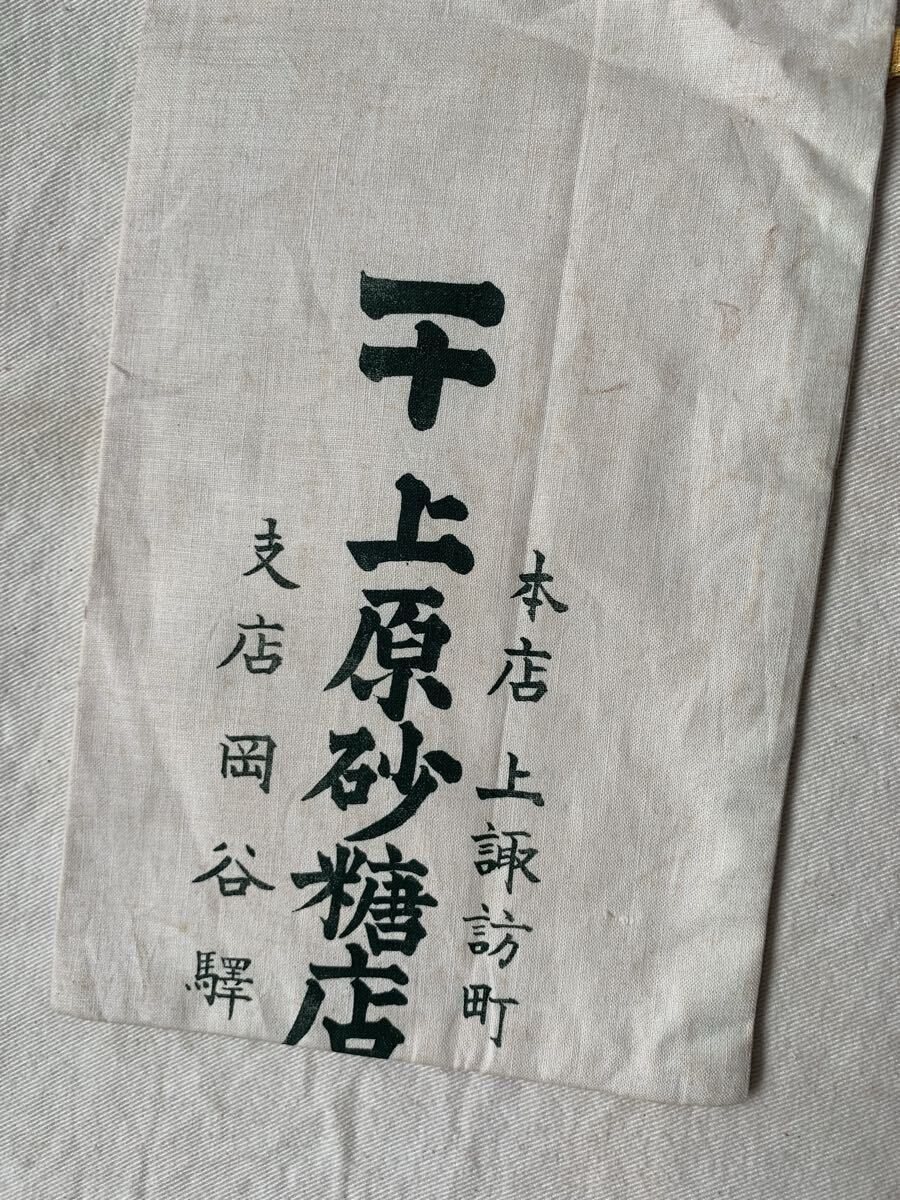 本店 上諏訪町
一十 上原砂糖店
支店 岡谷驛